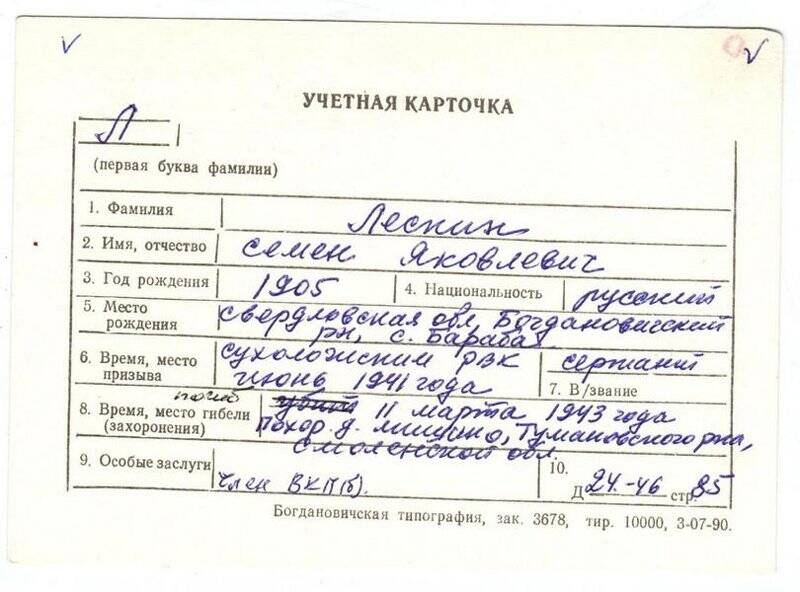 УЧЕТНАЯ КАРТОЧКА
Л
(первая буква фамилии)
1. Фамилия Леснин
2. Имя, отчество Семен Яковлевич
3. Год рождения 1905 4. Национальность русский
5. Место рождения Свердловская обл, Богдановичский
рн, с. Бараба
6. Время, место призыва Сухоложским РВК
июнь 1941 года
7. В/звание сержант
8. Время, место гибели (захоронения) погиб 11 марта 1943 года
Похор. д. Мишино, Тумановского рна,
Смоленской обл.
9. Особые заслуги Член ВКП(б).
10. Д 24-46 стр. 85
Богдановичская типография, зак. 3678, тир. 10000, 3-07-90.